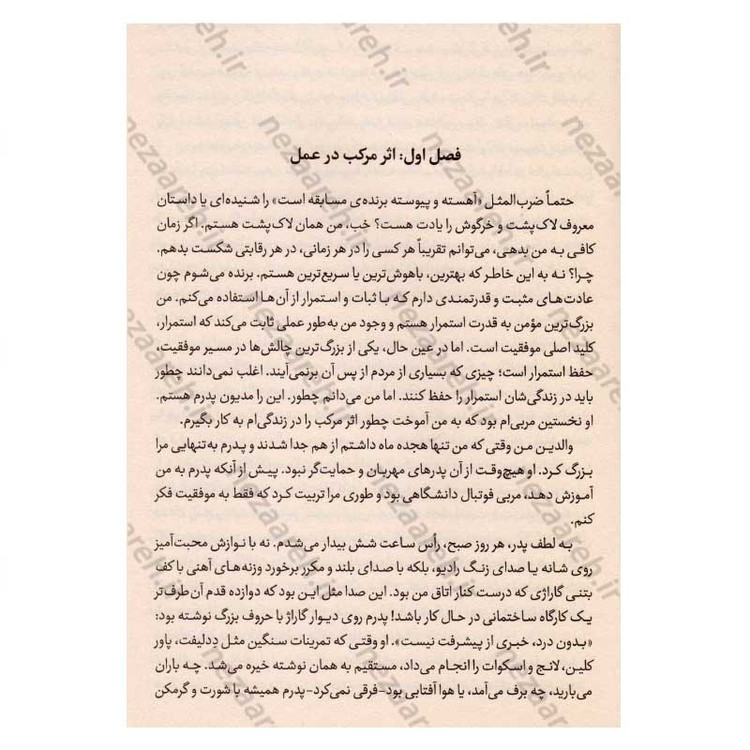 فصل اول: اثر مرکب در عمل
حتماً ضرب‌المثل «آهسته و پیوسته برنده‌ی مسابقه است» را شنیده‌ای یا داستان
معروف لاک‌پشت و خرگوش را یادت هست؟ خب، من همان لاک‌پشت هستم. اگر زمان
کافی به من بدهی، می‌توانم تقریباً هر کسی را در هر زمانی، در هر رقابتی شکست بدهم.
چرا؟ نه به این خاطر که بهترین، باهوش‌ترین یا سریع‌ترین هستم. برنده می‌شوم چون
عادت‌های مثبت و قدرتمندی دارم که با ثبات و استمرار از آن‌ها استفاده می‌کنم. من
بزرگ‌ترین مؤمن به قدرت استمرار هستم و وجود من به‌طور عملی ثابت می‌کند که استمرار،
کلید اصلی موفقیت است. اما در عین حال، یکی از بزرگ‌ترین چالش‌ها در مسیر موفقیت،
حفظ استمرار است؛ چیزی که بسیاری از مردم از پس آن برنمی‌آیند. اغلب نمی‌دانند چطور
باید در زندگی‌شان استمرار را حفظ کنند. اما من می‌دانم چطور. این را مدیون پدرم هستم.
او نخستین مربی‌ام بود که به من آموخت چطور اثر مرکب را در زندگی‌ام به کار بگیرم.
والدین من وقتی که من تنها هجده ماه داشتم از هم جدا شدند و پدرم به‌تنهایی مرا
بزرگ کرد. او هیچ‌وقت از آن پدرهای مهربان و حمایت‌گر نبود. پیش از آنکه پدرم به من
آموزش دهد، مربی فوتبال دانشگاهی بود و طوری مرا تربیت کرد که فقط به موفقیت فکر
کنم.
به لطف پدر، هر روز صبح، رأس ساعت شش بیدار می‌شدم. نه با نوازش محبت‌آمیز
روی شانه یا صدای زنگ رادیو، بلکه با صدای بلند و مکرر برخورد وزنه‌های آهنی با کف
بتنی گاراژی که درست کنار اتاق من بود. این صدا مثل این بود که دوازده قدم آن طرف‌تر
یک کارگاه ساختمانی در حال کار باشد! پدرم روی دیوار گاراژ با حروف بزرگ نوشته بود:
«بدون درد، خبری از پیشرفت نیست». او وقتی که تمرینات سنگین مثل ددلیفت، پاور
کلین، لانج و اسکوات را انجام می‌داد، مستقیم به همان نوشته خیره می‌شد. چه باران
می‌بارید، چه برف می‌آمد، یا هوا آفتابی بود-فرقی نمی‌کرد-پدرم همیشه با شورت و گرمکن
nezaareh.ir